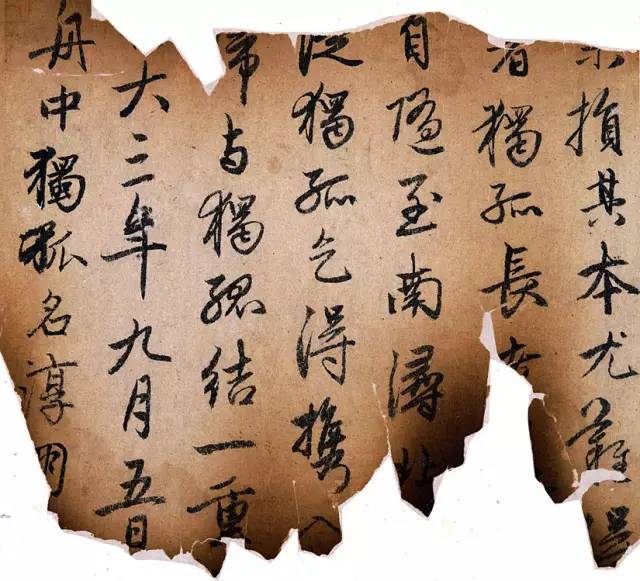 損其本尤難得
者獨孤長
自隨至南潯北
從獨孤乞得攜入
歸與獨孤結一重
大三年九月五日
舟中獨孤名淳朋